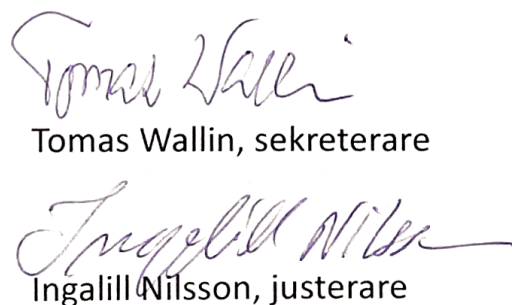 Tomas Wallin
Tomas Wallin, sekreterare
Ingalill Nilsson
Ingalill Nilsson, justerare